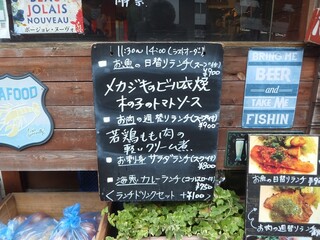 BEAUJOLAIS
NOUVEAU
ボージョレ・ヌーヴォ
11:30~14:00(ラストオーダー)
お魚の日替りランチ(スープ付)
¥900
メカジキのビール衣焼
木の子のトマトソース
お肉の週替りランチ(スープ付)
¥900
若鶏もも肉の
軽いクリーム煮
サラダランチ(スープ付)
¥800
海鬼カレーランチ
¥750
<ランチドリンクセット +¥100>
SEAFOOD
BRING ME
BEER
and
TAKE ME
FISHIN
お魚の日替りランチ
お肉の週替りランチ